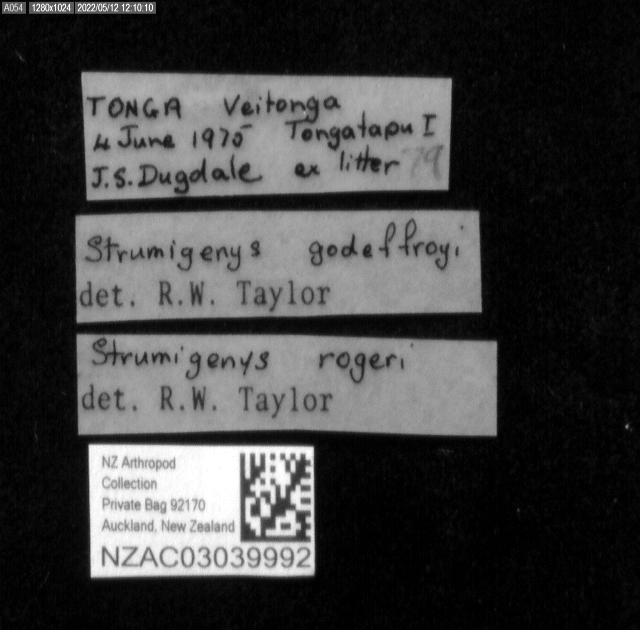 A054 1280x1024 2022/05/12 12:10:10
TONGA Veitonga
4 June 1975 Tongatapu I
J.S. Dugdale ex litter 79
Strumigenys godeffroyi
det. R.W. Taylor
Strumigenys rogeri
det. R.W. Taylor
NZ Arthropod
Collection
Private Bag 92170
Auckland, New Zealand
NZAC03039992